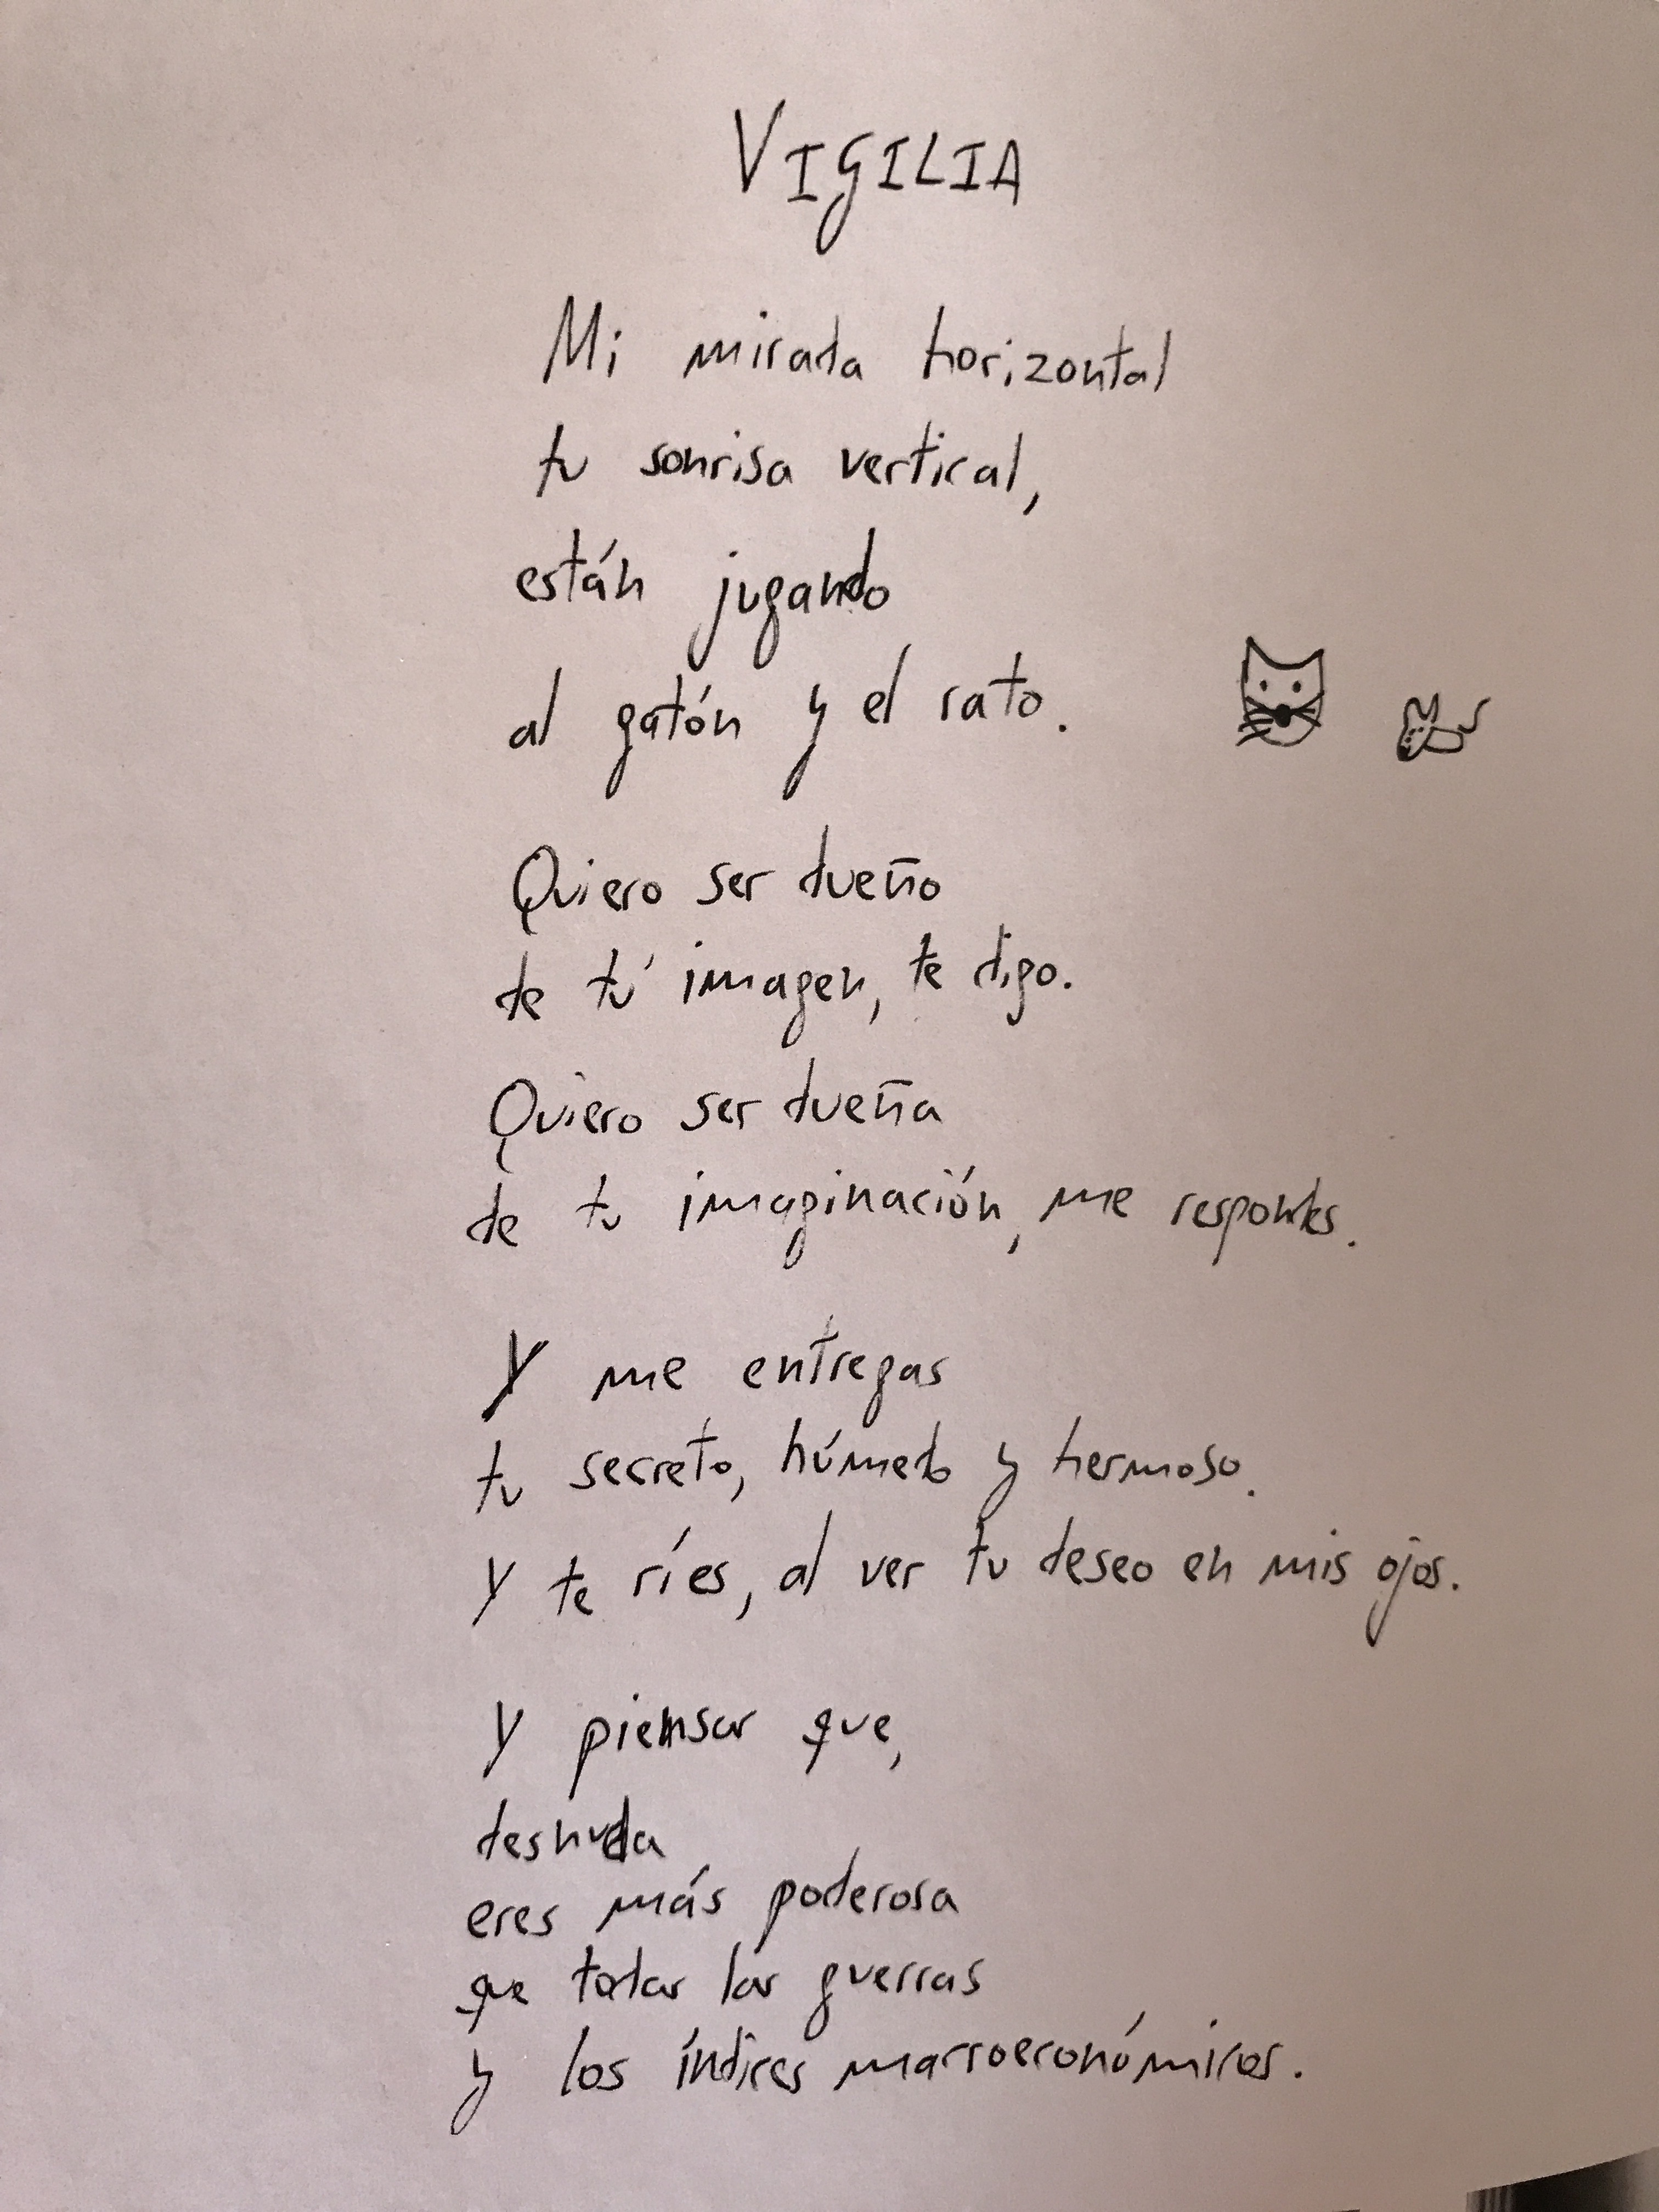 VIGILIA
Mi mirada horizontal
tu sonrisa vertical,
están jugando
al gatón y el rato.
Quiero ser dueño
de tú imagen, te digo.
Quiero ser dueña
de tu imaginación, me respondes.
Y me entregas
tu secreto, húmedo y hermoso.
Y te ríes, al ver tu deseo en mis ojos.
Y piensar que,
desnuda
eres más poderosa
que todas las guerras
y los índices macroeconómicos.